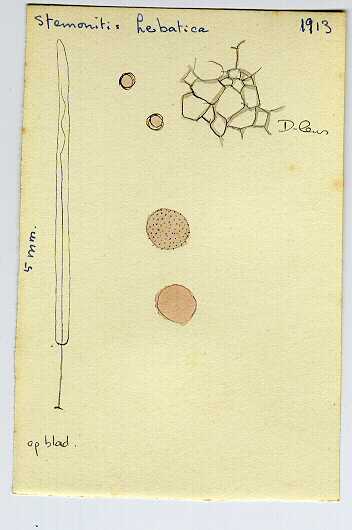 Stemonitis herbatica 1913
5 mm
op blad.